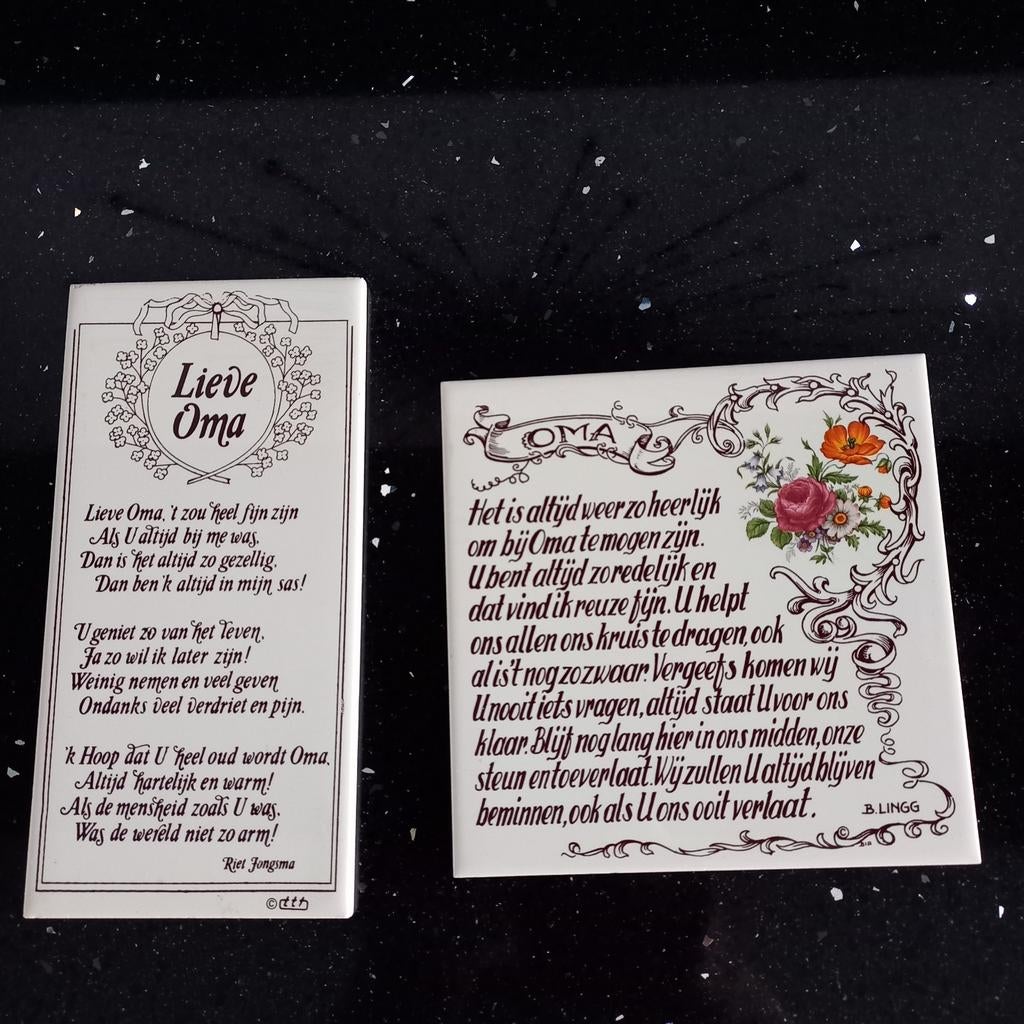 Lieve
Oma
Lieve Oma, 't zou heel fijn zijn
Als U altijd bij me was,
Dan is het altijd zo gezellig,
Dan ben 'k altijd in mijn sas!
U geniet zo van het leven,
Ja zo wil ik later zijn!
Weinig nemen en veel geven
Ondanks veel verdriet en pijn.
'k Hoop dat U heel oud wordt Oma,
Altijd hartelijk en warm!
Als de mensheid zoals U was,
Was de wereld niet zo arm!
Riet Jongsma
©
OMA
Het is altijd weer zo heerlijk
om bij Oma te mogen zijn.
U bent altijd zo redelijk en
dat vind ik reuze fijn. U helpt
ons allen ons kruis te dragen, ook
al is 't nog zo zwaar. Vergeefs komen wij
U nooit iets vragen, altijd staat U voor ons
klaar. Blijf nog lang hier in ons midden, onze
steun en toeverlaat. Wij zullen U altijd blijven
beminnen, ook als U ons ooit verlaat.
B. LINGG